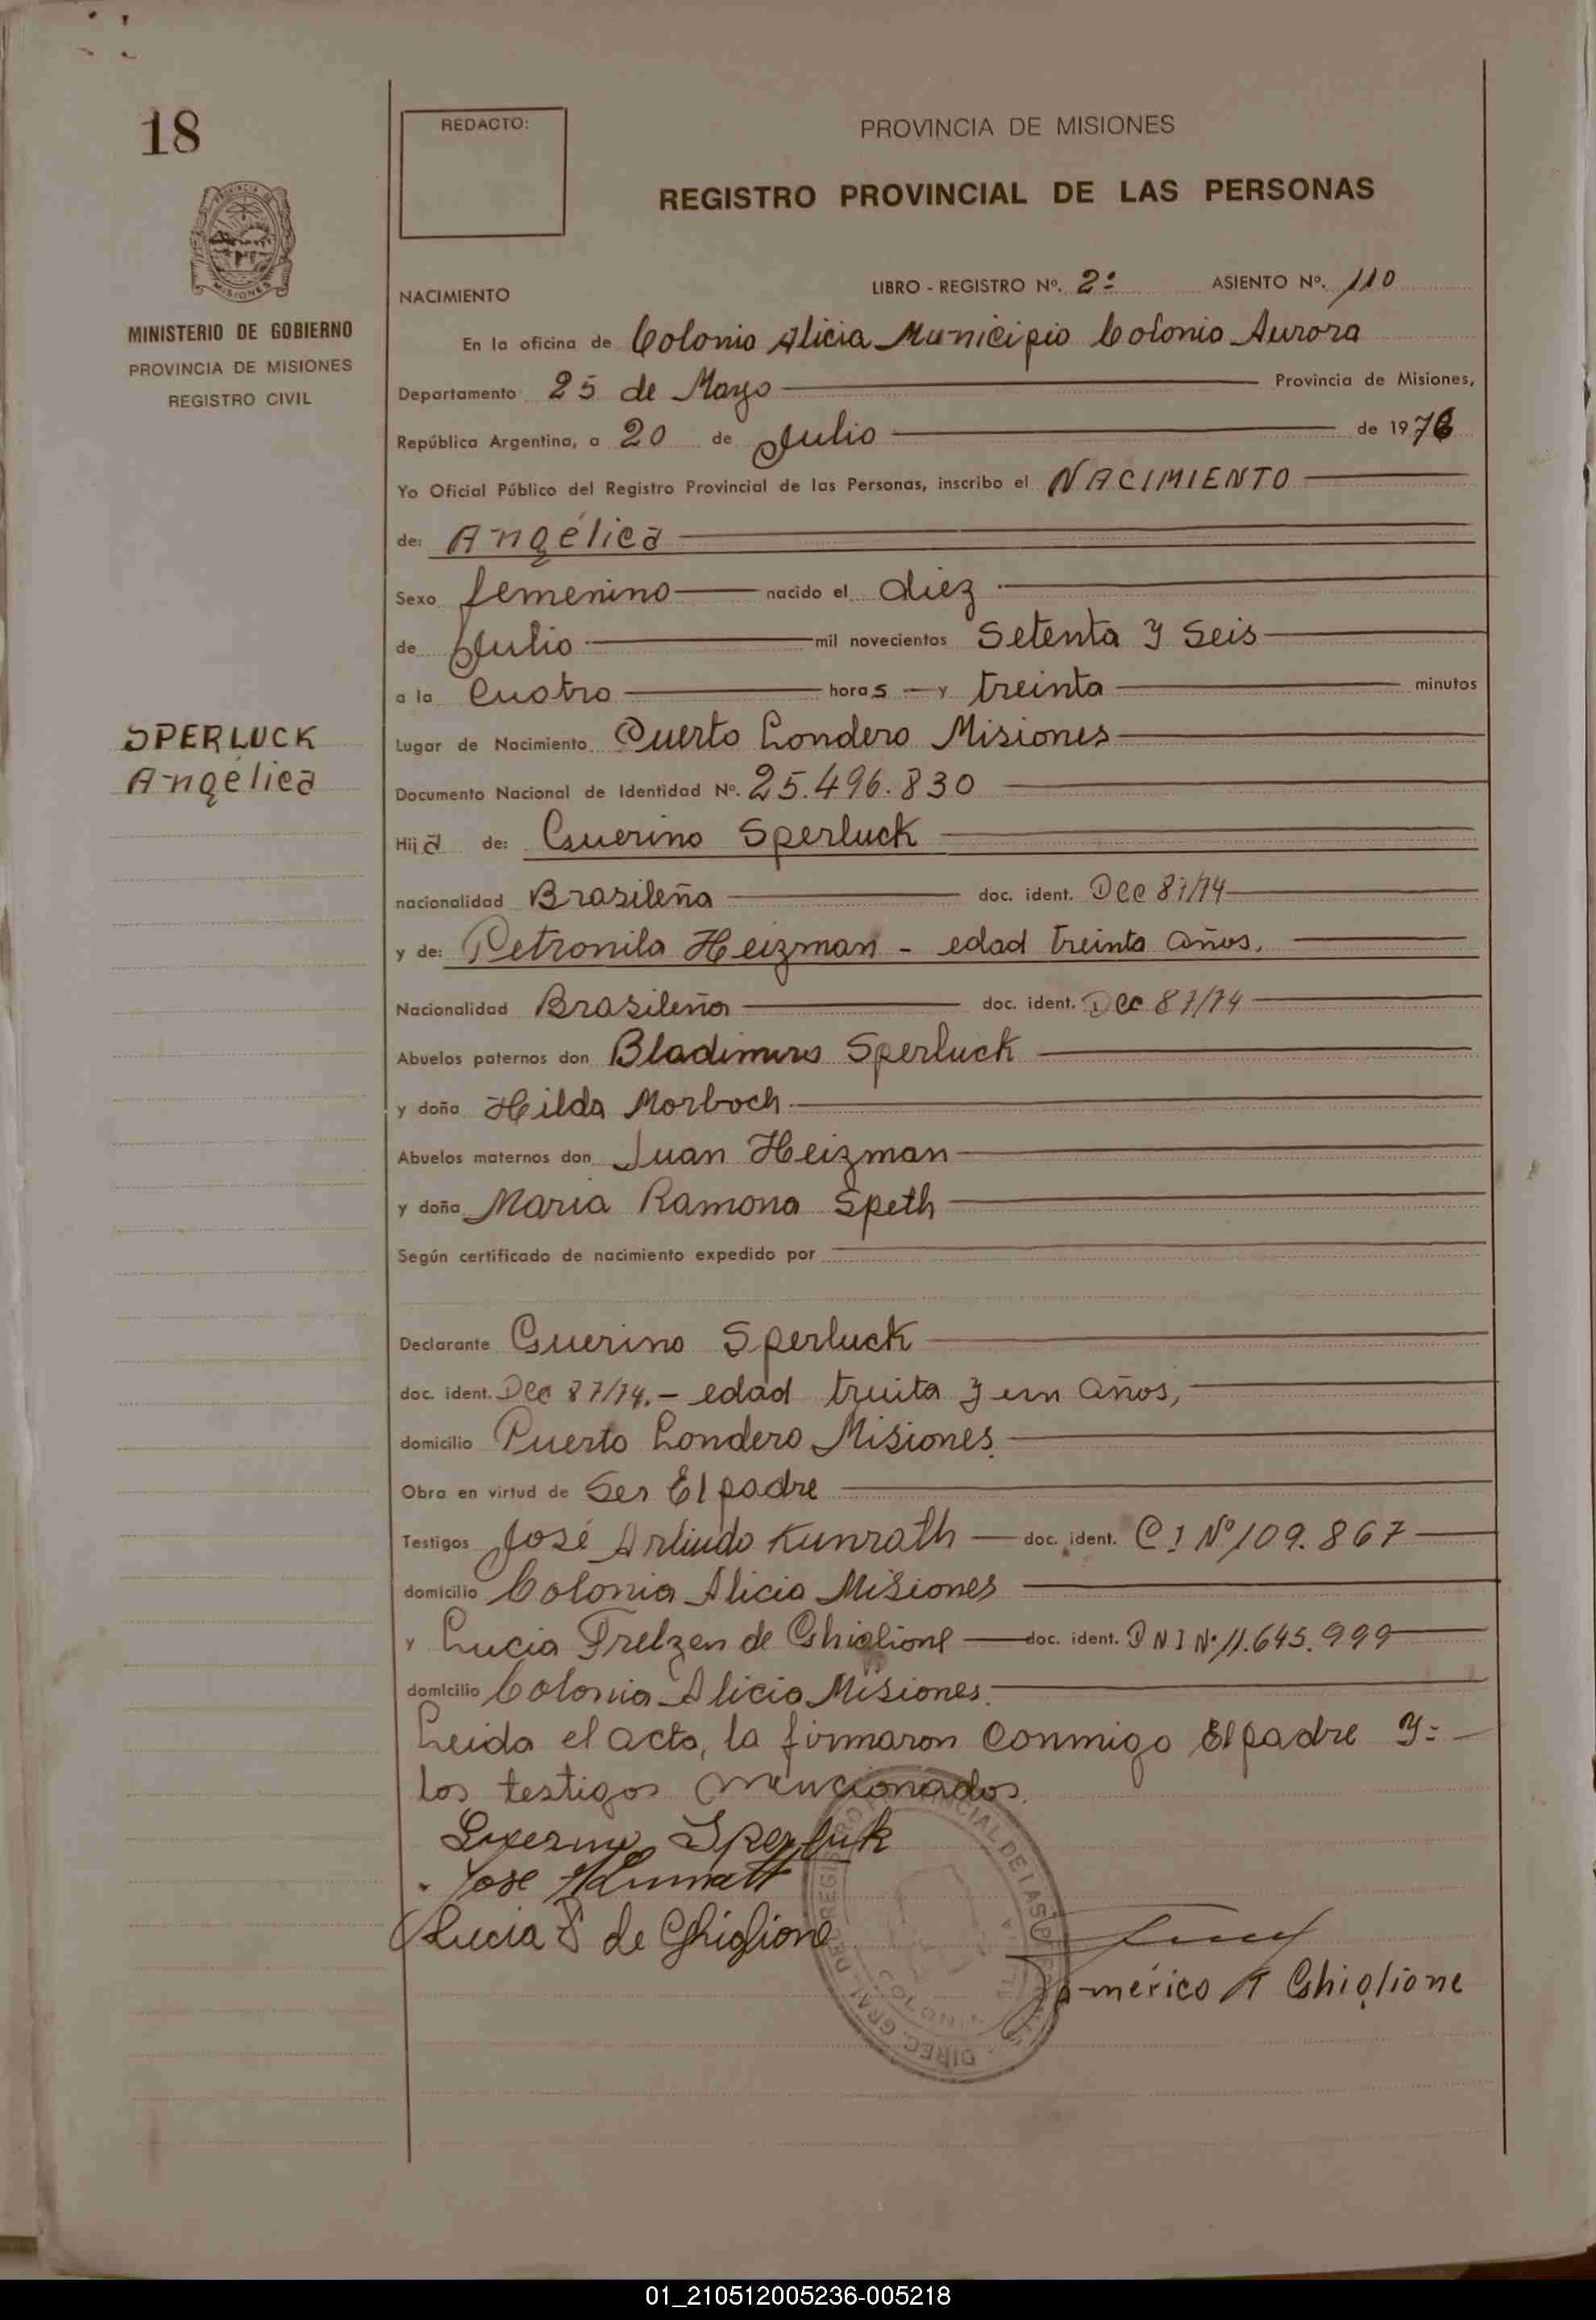 18
REDACTO:
PROVINCIA DE MISIONES
REGISTRO PROVINCIAL DE LAS PERSONAS
MISIONES
MINISTERIO DE GOBIERNO
PROVINCIA DE MISIONES
REGISTRO CIVIL
NACIMIENTO LIBRO - REGISTRO Nº. 2º ASIENTO Nº. 110
En la oficina de Colonia Alicia Municipio Colonia Aurora
Departamento 25 de Mayo Provincia de Misiones,
República Argentina, a 20 de Julio de 1976
Yo Oficial Público del Registro Provincial de las Personas, inscribo el NACIMIENTO
de: Angélica
Sexo femenino nacido el diez
de Julio mil novecientos Setenta y Seis
a la Cuatro horas y treinta minutos
SPERLUCK
Angélica
Lugar de Nacimiento Puerto Londero Misiones
Documento Nacional de Identidad Nº. 25.496.830
Hija de: Guerino Sperluck
nacionalidad Brasileña doc. ident. Dec 87/74
y de: Petronila Heizman - edad treinta años.
Nacionalidad Brasileña doc. ident. Dec 87/74
Abuelos paternos don Sperluck
y doña Hilda Morboch
Abuelos maternos don Juan Heizman
y doña Maria Ramona Speth
Según certificado de nacimiento expedido por
Declarante Guerino Sperluck
doc. ident. Dec 87/74. - edad truita y un años,
domicilio Puerto Londero Misiones.
Obra en virtud de Ser El padre
Testigos José Arlindo Kunrath doc. ident. C I Nº 109.867
domicilio Colonia Alicia Misiones
y Lucia Frelzen de Ghiglione doc. ident. D N I Nº 11.645.999
domicilio Colonia Alicia Misiones.
Leida el acta, la firmaron Conmigo El padre y=
los testigos mencionados.
Jose
Lucia F de Ghiglione
Américo Ghiglione
01_210512005236-005218